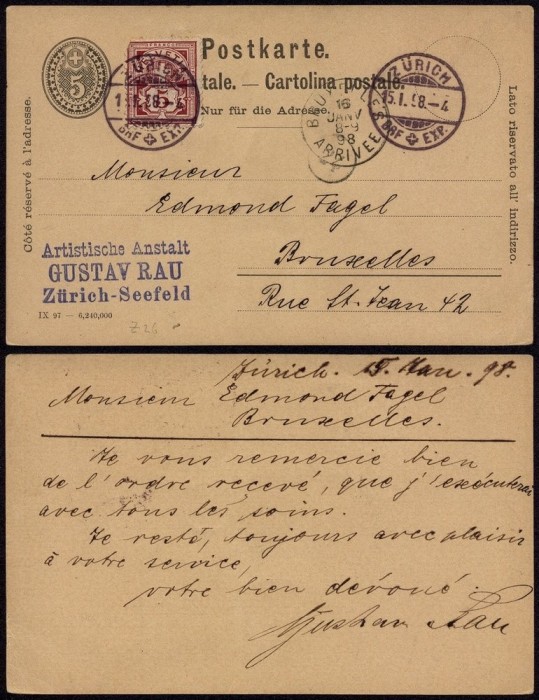 Postkarte.
tale. — Cartolina postale.
Nur für die Adresse.
Côté réservé à l'adresse.
Lato riservato all' indirizzo.
5
FRANCO
5
ZÜRICH
BRF EXP.
ZÜRICH
15.I.98.-4
BRF EXP.
16
JANV
8-9
98
ARRIVEE
Monsieur
Edmond Fagel
Bruxelles
Rue St. Jean 42
Artistische Anstalt
GUSTAV RAU
Zürich-Seefeld
IX 97 — 6,240,000
Zürich. 15. Jan. 98.
Monsieur Edmond Fagel
Bruxelles.
Je vous remercie bien
de l'ordre recevé, que j'exécuterai
avec tous les soins.
Je resté, toujours avec plaisir
à votre service,
votre bien dévoué.
Gustav Rau